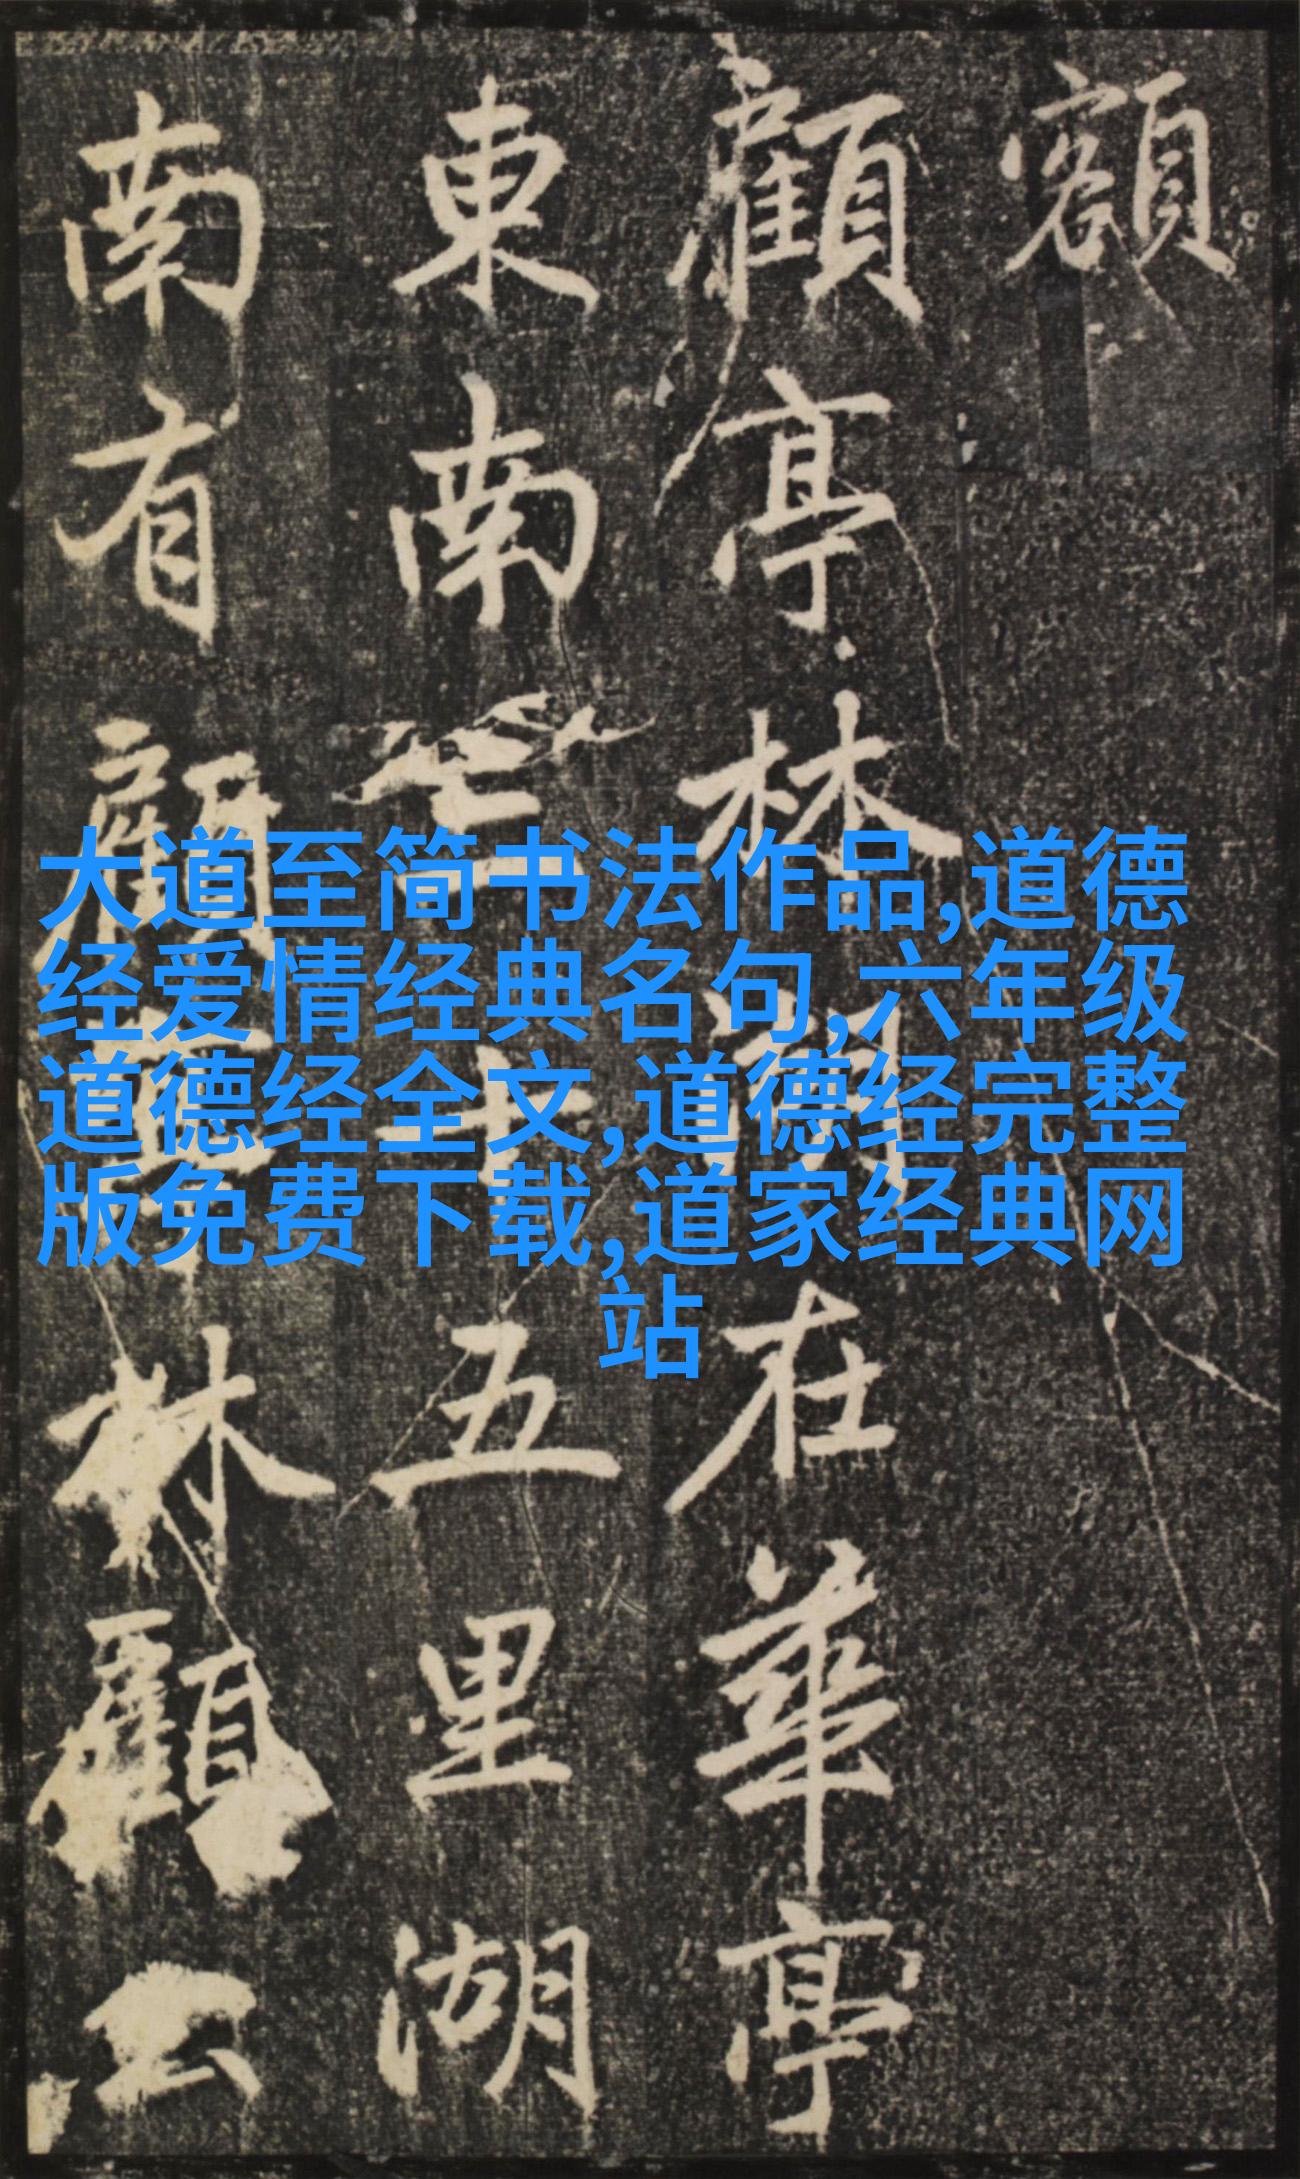 額
顧亭林湖在華亭
東南三十五里湖
南有顧亭林顧公
大道至简书法作品,道德
经爱情经典名句,六年级
道德经全文,道德经完整
版免费下载,道家经典网
站